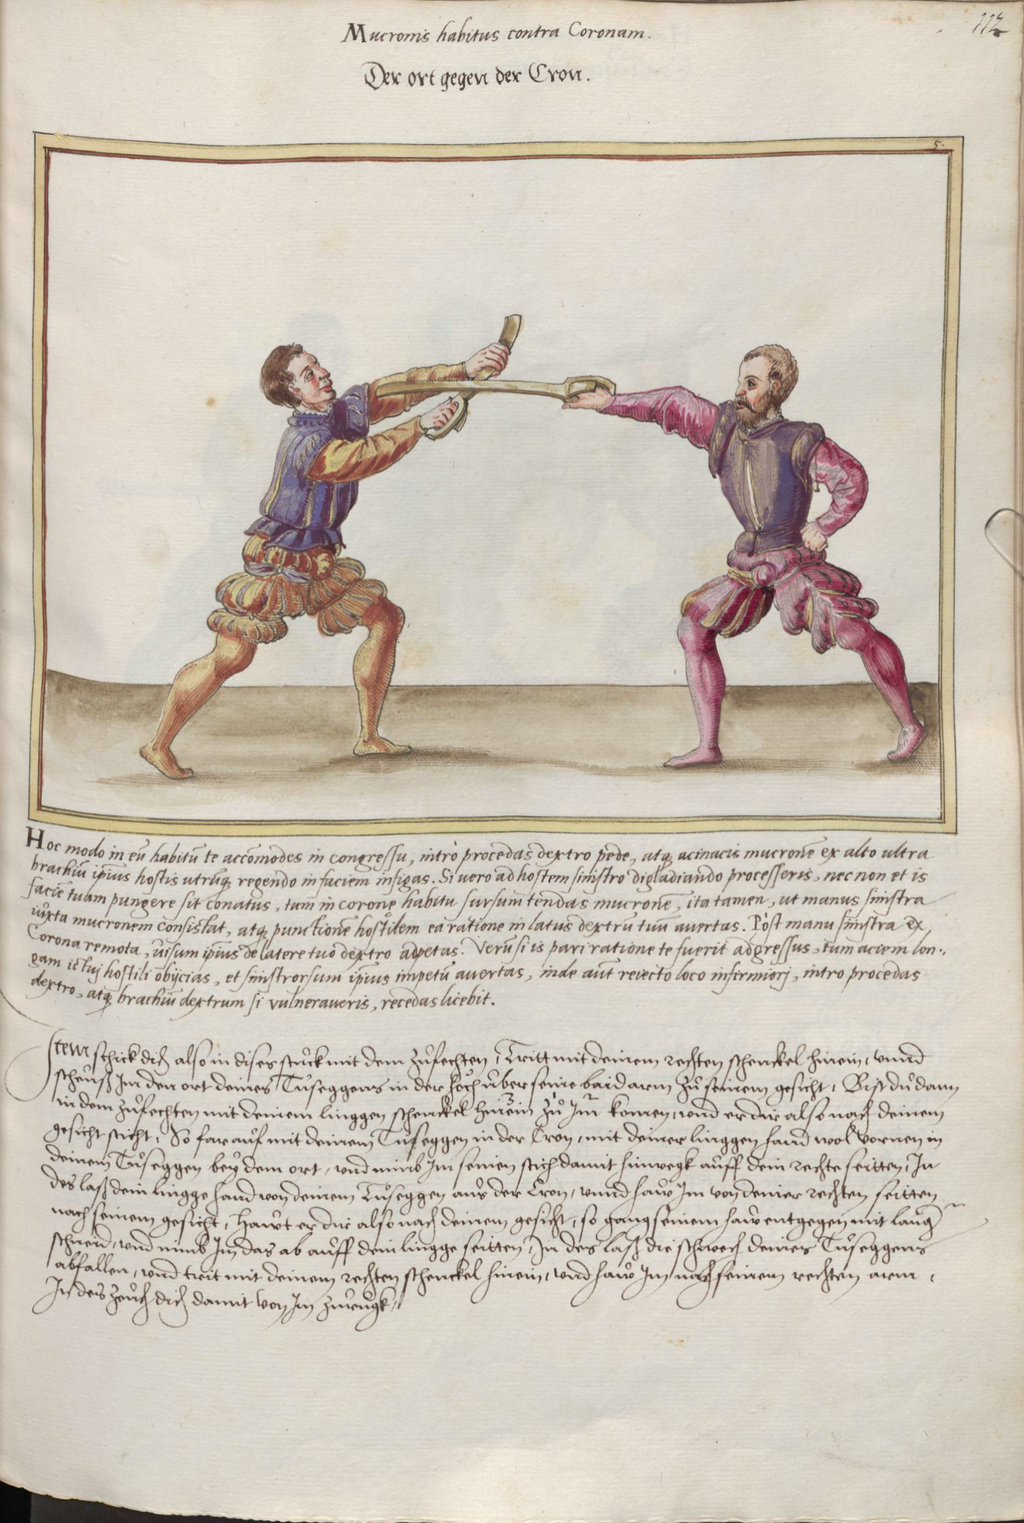 112
Mucronis habitus contra Coronam.
Der ort gegen der Cron.
5.
Hoc modo in eũ habitũ te accõmodes in congressu, intrò procedas dextro pede, atq; acinacis mucronẽ ex alto ultra
brachiũ ipsius hostis utrũq; regendo in faciem infigas. Si uero ad hostem sinistro digladiando processeris, nec non et is
faciẽ tuam pungere sit conatus, tum in coronę habitu sursum tendas mucronẽ, ita tamen, ut manus sinistra
iuxta mucronem consistat, atq; punctionẽ hostilem ea ratione in latus dextrũ tuũ auertas. Pòst manu sinistra ex
Corona remota, uisum ipsius de latere tuo dextro adpetas. Verũ si is pari ratione te fuerit adgressus, tum aciem lon:
gam ictuj hostili obijcias, et sinistrorsum ipsius impetũ auertas, inde aũt reiecto loco infirmiorj, intro procedas
dextro, atq; brachiũ dextrum si vulneraueris, recedas licebit.
Item schick dich also in dises stuck mit dem zůfechten, Tritt mit deinem rechten schenckel hinein, vnnd
scheuß Im den ort deines Tuseggens in der höch uber seine baid arm zů seinem gesicht, Bist du dann
in dem zůfechten mit deinem linggen schenckel hinein zů Im komen, vnd er dir also nach deinem
gesicht sticht, So far auf mit deinem Tuseggen in der Cron, mit deiner linggen hand wol vornen in
deinem Tuseggen bey dem ort, vnd nimb Im seinen stich damit hinwegk auff dein rechte seitten, In
des laß dein lingge hand von deinem Tuseggen aus der Cron, vnnd haw Im von deiner rechten seitten
nach seinem gesicht, Hawt er dir also nach deinem gesicht, so gang seinem haw entgegen mit lang
schneid, vnd nimb Im das ab auff dein lingge seitten, In des laß die schwech deines Tuseggens
abfallen, vnd trit mit deinem rechten schenckel hinein, vnd haw Im nach seinem rechten arm,
In des zeuch dich damit von Im zurugk.